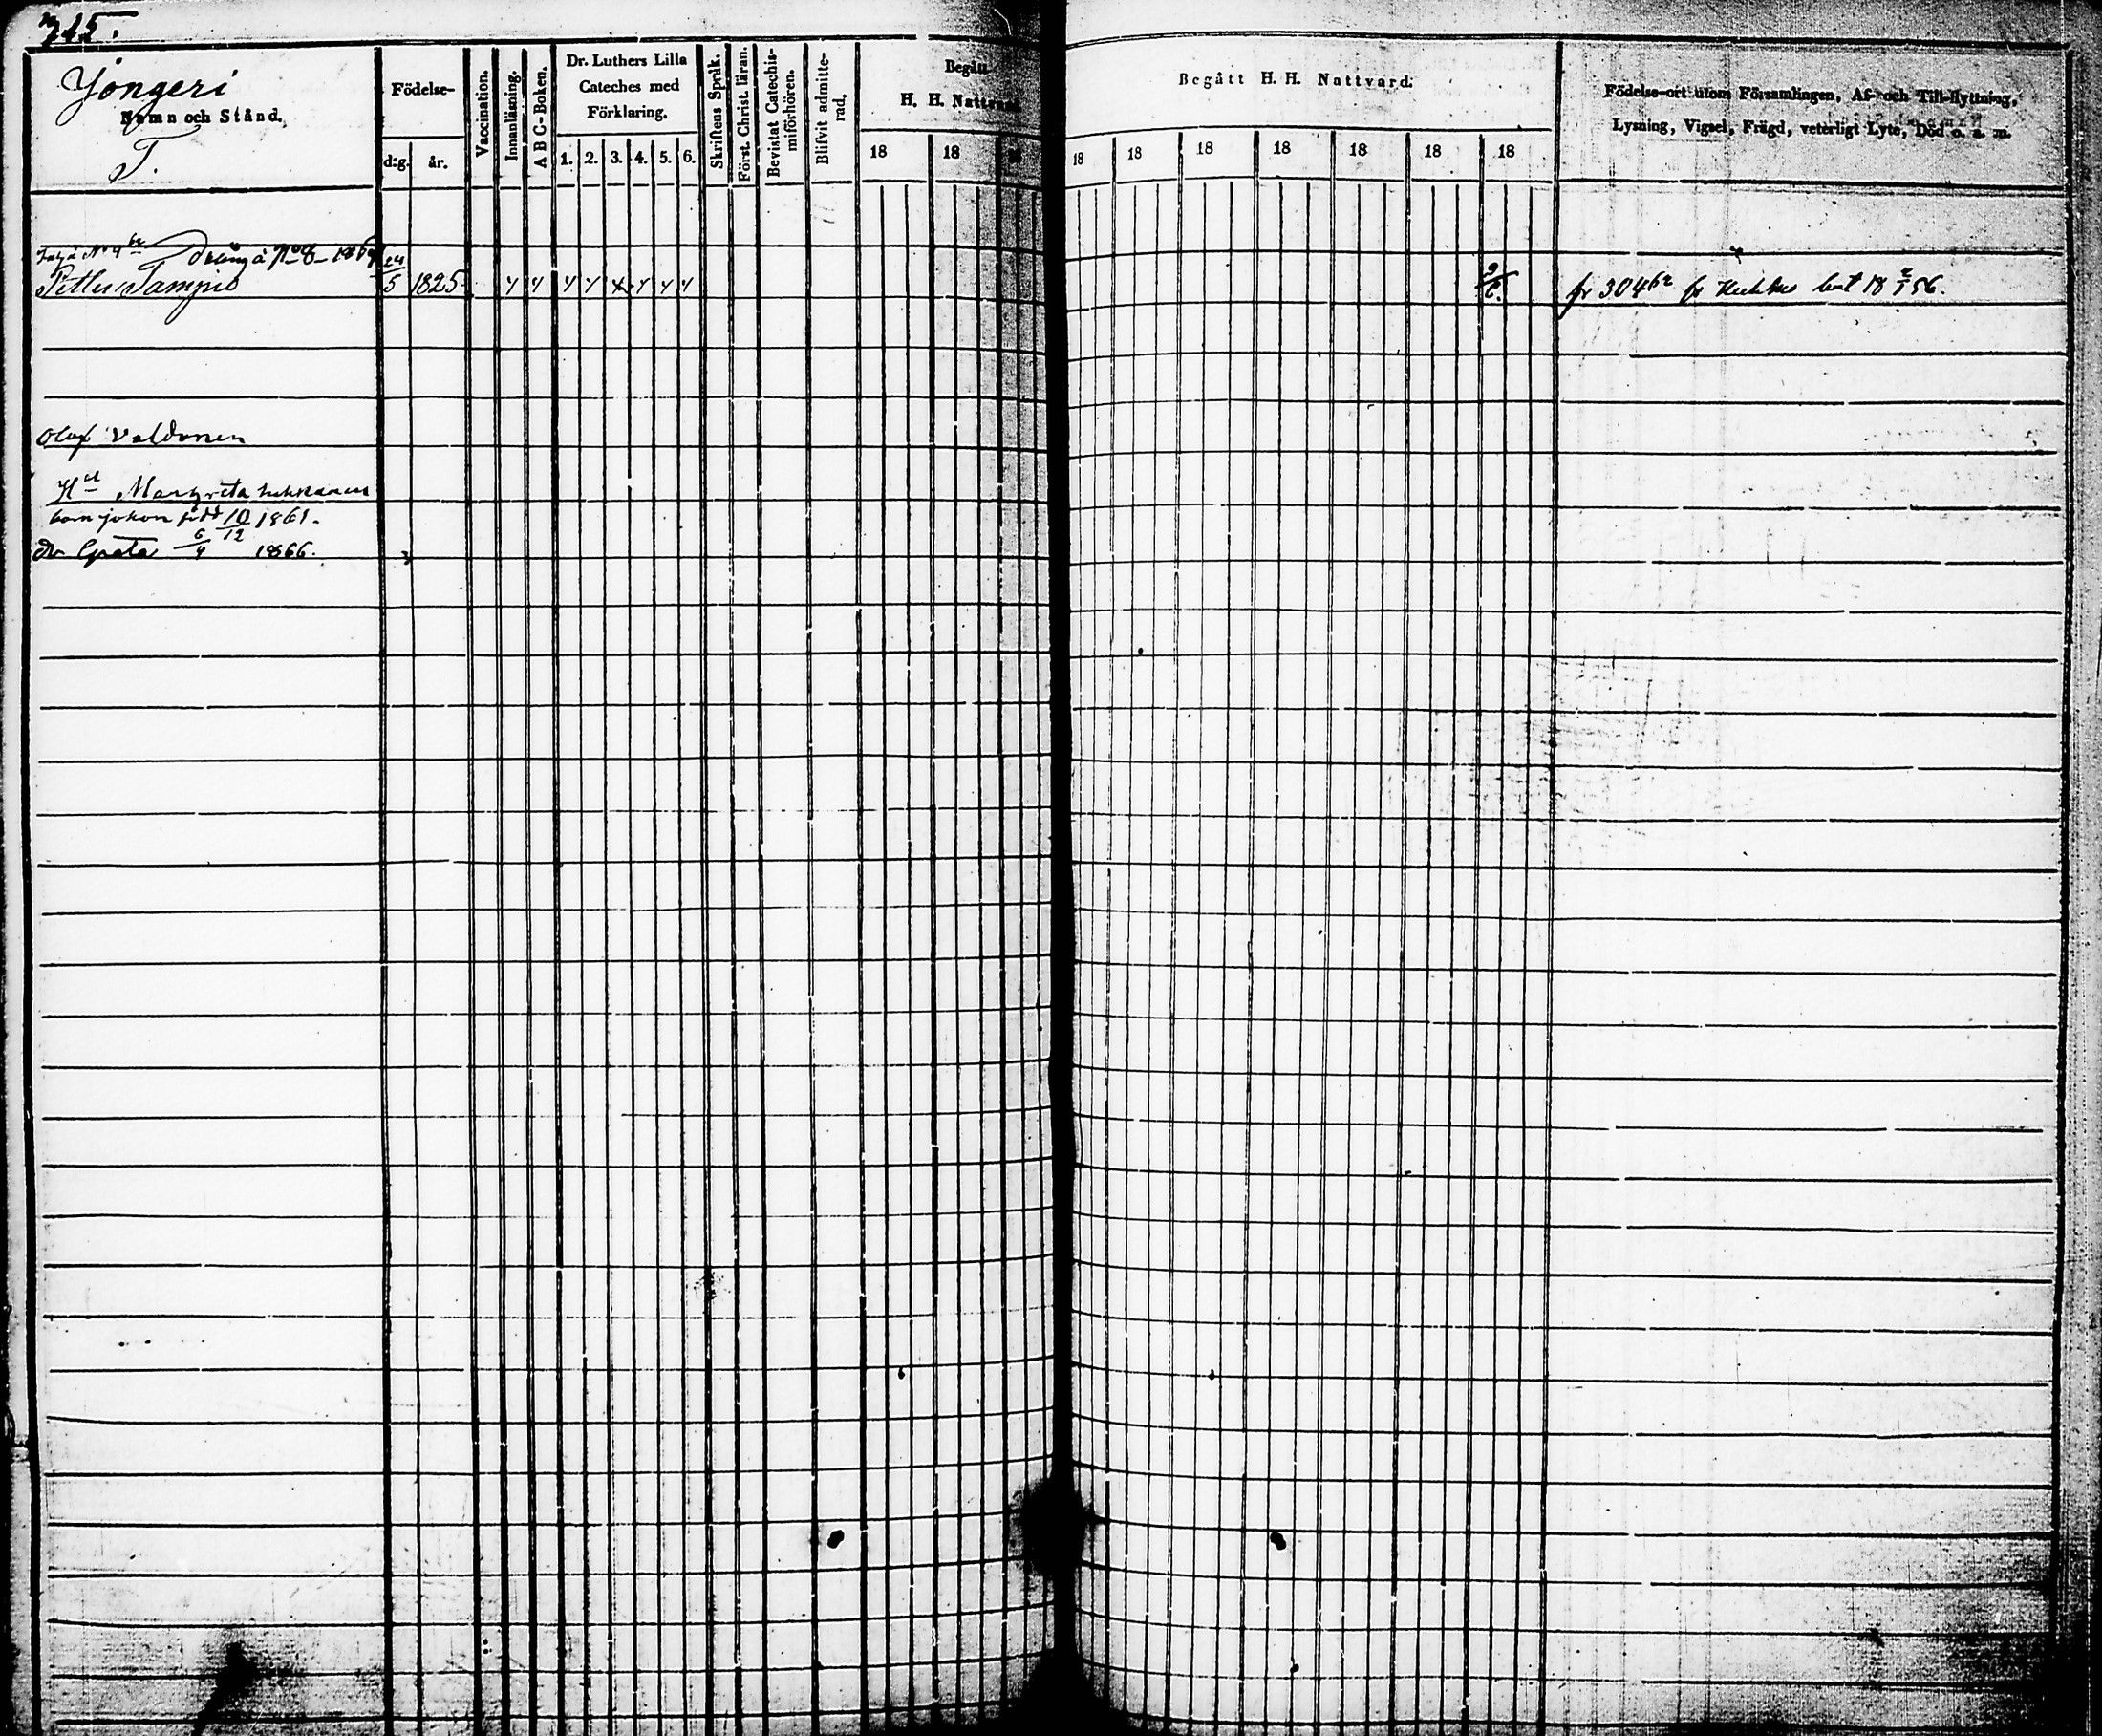 715.
Jongeri
Namn och Stånd.
T.
Födelse-
d:g. år.
Vaccination.
Innanläsning.
A B C-Boken.
Dr. Luthers Lilla
Cateches med
Förklaring.
1. 2. 3. 4. 5. 6.
Skriftens Språk.
Först. Christ. läran.
Bevistat Catechis-
miförhören.
Blifvit admitte-
rad.
Begått
H. H. Nattvard.
18 18
Begått H. H. Nattvard.
18 18 18 18 18 18 18
Födelse-ort utom Församlingen, Af- och Till-flyttning,
Lysning, Vigsel, Frägd, veterligt Lyte, Död o. s. m.
No 4 dräng å No 8 1869
Petter Tampio 24/5 1825 2/6. fr 304 fr 18 2/1 56.
Olof Valdonen
Margreta
barn född 10/12 1861.
dr Greta 6/4 1866.